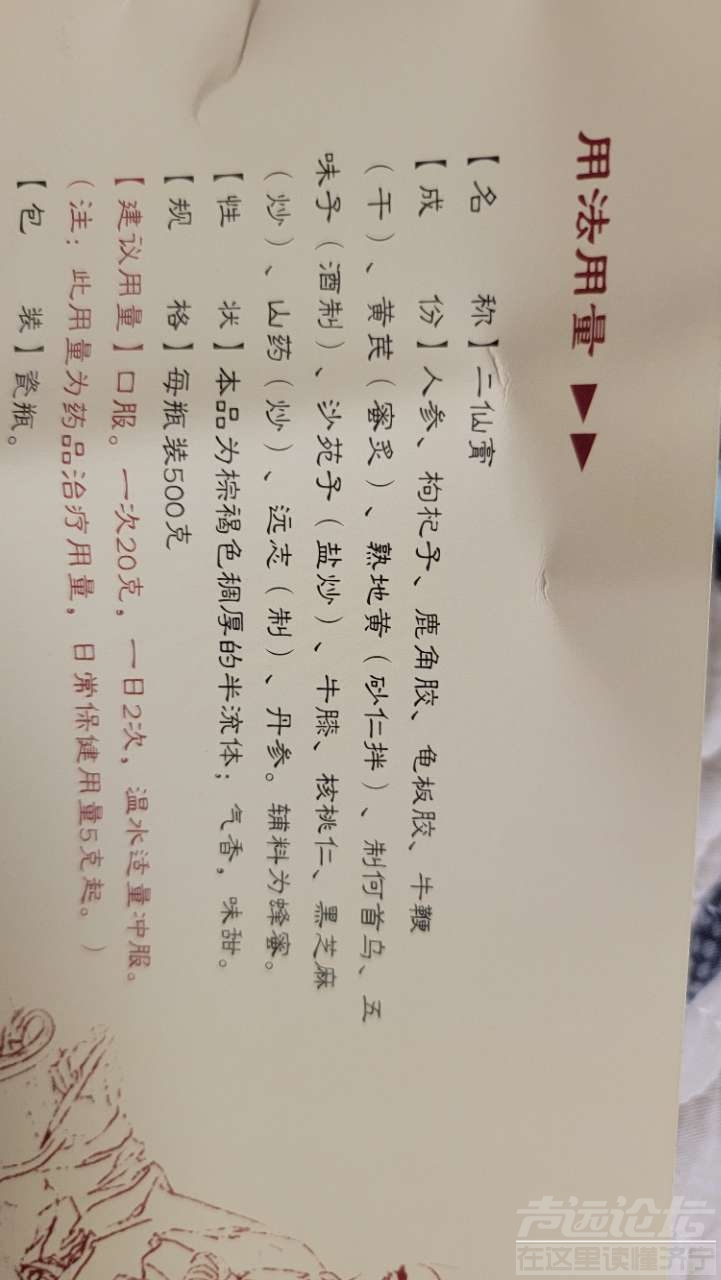 用法用量 ▶▶
【名 称】二仙膏
【成 份】人参、枸杞子、鹿角胶、龟板胶、牛鞭
（干）、黄芪（蜜炙）、熟地黄（砂仁拌）、制何首乌、五
味子（酒制）、沙苑子（盐炒）、牛膝、核桃仁、黑芝麻
（炒）、山药（炒）、远志（制）、丹参。辅料为蜂蜜。
【性 状】本品为棕褐色稠厚的半流体；气香，味甜。
【规 格】每瓶装500克
【建议用量】口服。一次20克，一日2次，温水适量冲服。
（注：此用量为药品治疗用量，日常保健用量5克起。）
【包 装】瓷瓶。
声远论坛
在这里读懂济宁